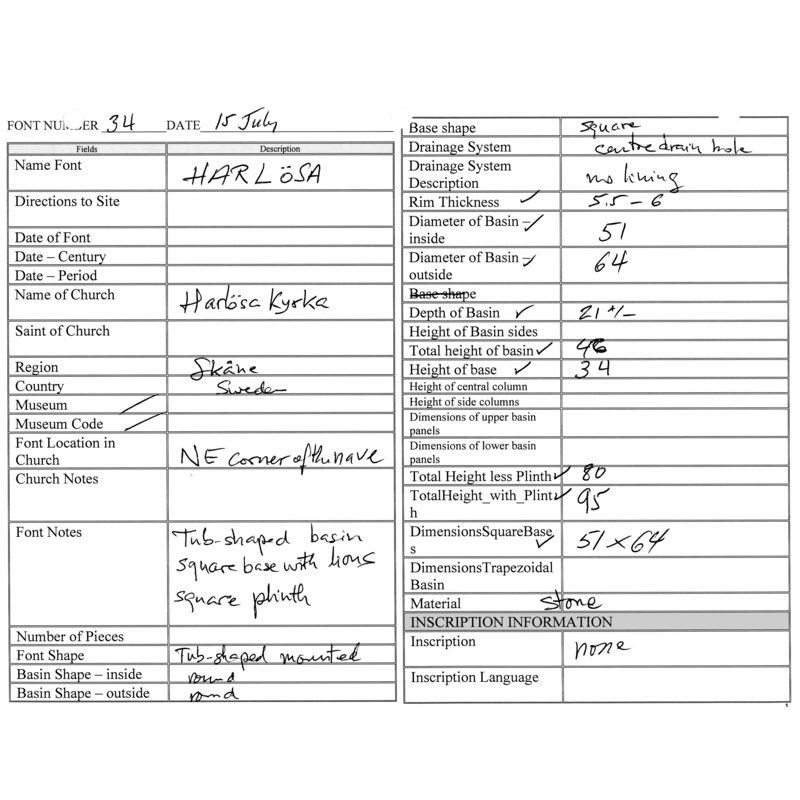 FONT NUMBER 34 DATE 15 July
Fields Description
Name Font HARLÖSA
Directions to Site
Date of Font
Date – Century
Date – Period
Name of Church Harlösa Kyrka
Saint of Church
Region Skåne
Country Sweden
Museum
Museum Code
Font Location in
Church NE corner of the nave
Church Notes
Font Notes Tub-shaped basin
square base with lions
square plinth
Number of Pieces
Font Shape Tub-shaped mounted
Basin Shape – inside round
Basin Shape – outside round
Base shape square
Drainage System centre drain hole
Drainage System
Description no lining
Rim Thickness ✓ 5.5 – 6
Diameter of Basin – ✓
inside 51
Diameter of Basin – ✓
outside 64
Base shape
Depth of Basin ✓ 21 +/-
Height of Basin sides
Total height of basin ✓ 46
Height of base ✓ 34
Height of central column
Height of side columns
Dimensions of upper basin
panels
Dimensions of lower basin
panels
Total Height less Plinth ✓ 80
TotalHeight_with_Plint ✓ 95
h
DimensionsSquareBase 51 x 64
s ✓
DimensionsTrapezoidal
Basin
Material stone
INSCRIPTION INFORMATION
Inscription none
Inscription Language
1